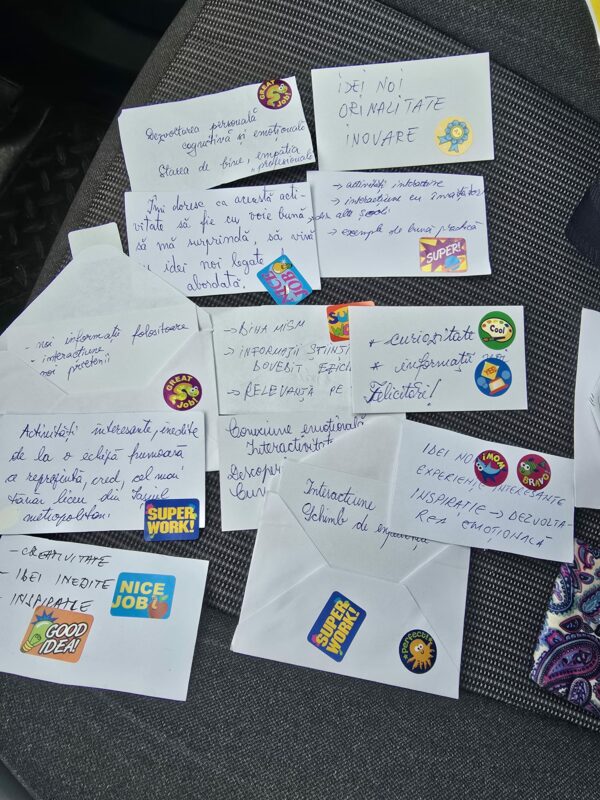 Dezvoltarea personală
cognitivă și emoțională
Starea de bine, empatia
profesionale
GREAT
Job!
IDEI NOI
ORINALITATE
INOVARE
Îmi doresc ca această acti-
vitate să fie cu voie bună,
să mă surprindă, să vină
cu idei noi legate
abordată.
NICE
JOB
→ activități interactive
→ interactiune cu învățători
din alte școli
→ exemple de bună practică
SUPER!
- noi informatii folositoare
- interactiune
noi prietenii
GREAT
Job!
→ BINA MISM
→ INFORMAȚII ȘTIINȚI
DOVEDIT EFICI
→ RELEVANȚĂ PE
* curiozitate
* informații noi
Felicitări!
Cool
YES!
Activități interesante, inedite
de la o echipă frumoasă
ce reprezintă, cred, cel mai
tânăr liceu din
metropolitan.
SUPER
WORK!
Conexiune emoțională
Interactivitate
Descoper
Interactiune
Schimb de experiență
SUPER
WORK!
Perfect!
IDEI NOI
EXPERIENȚE INTERESANTE
INSPIRATIE → DEZVOLTA-
REA EMOTIONALĂ
WOW!
BRAVO
- CREATIVITATE
- IDEI INEDITE
- INSPIRATIE
NICE
JOB!
GOOD
IDEA!